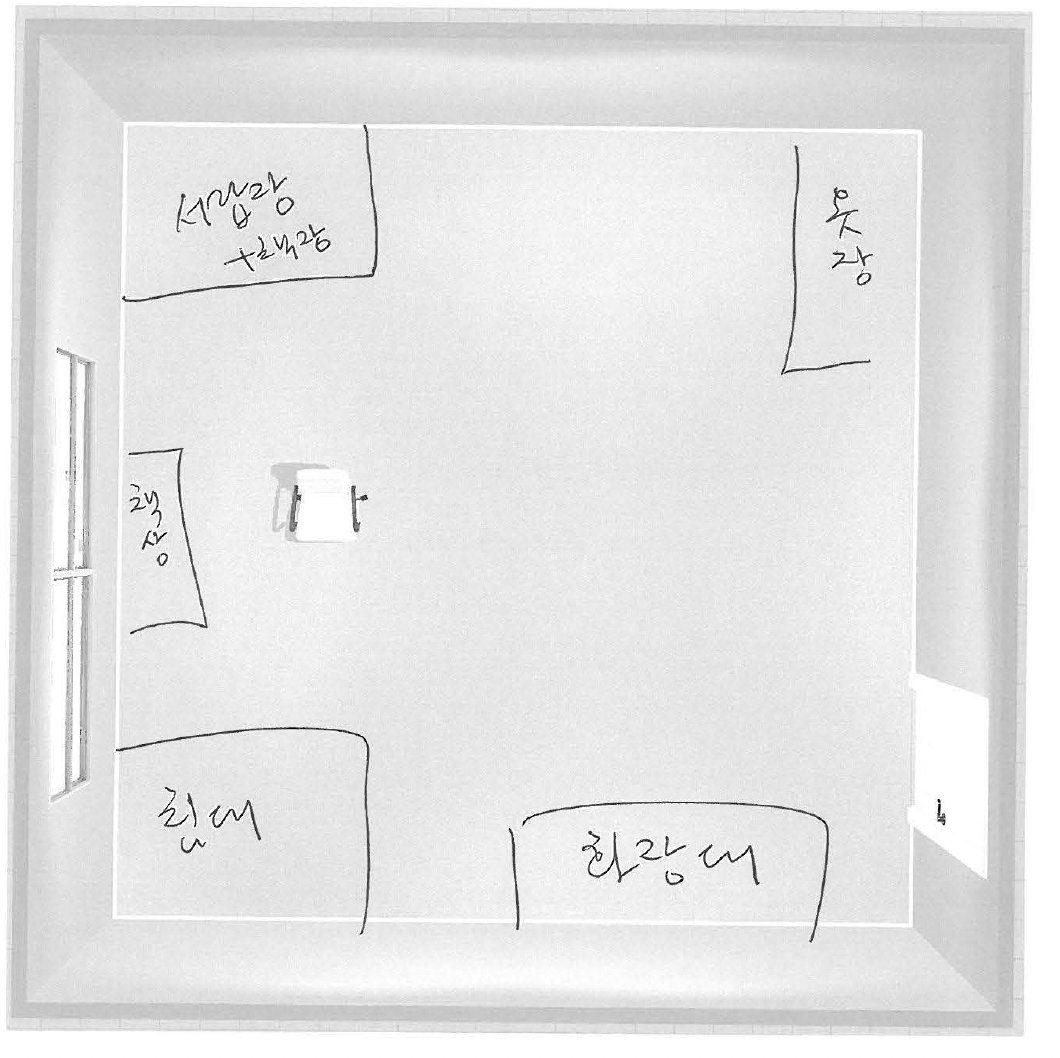 서랍장
+책장
옷
장
책
상
침대
화장대